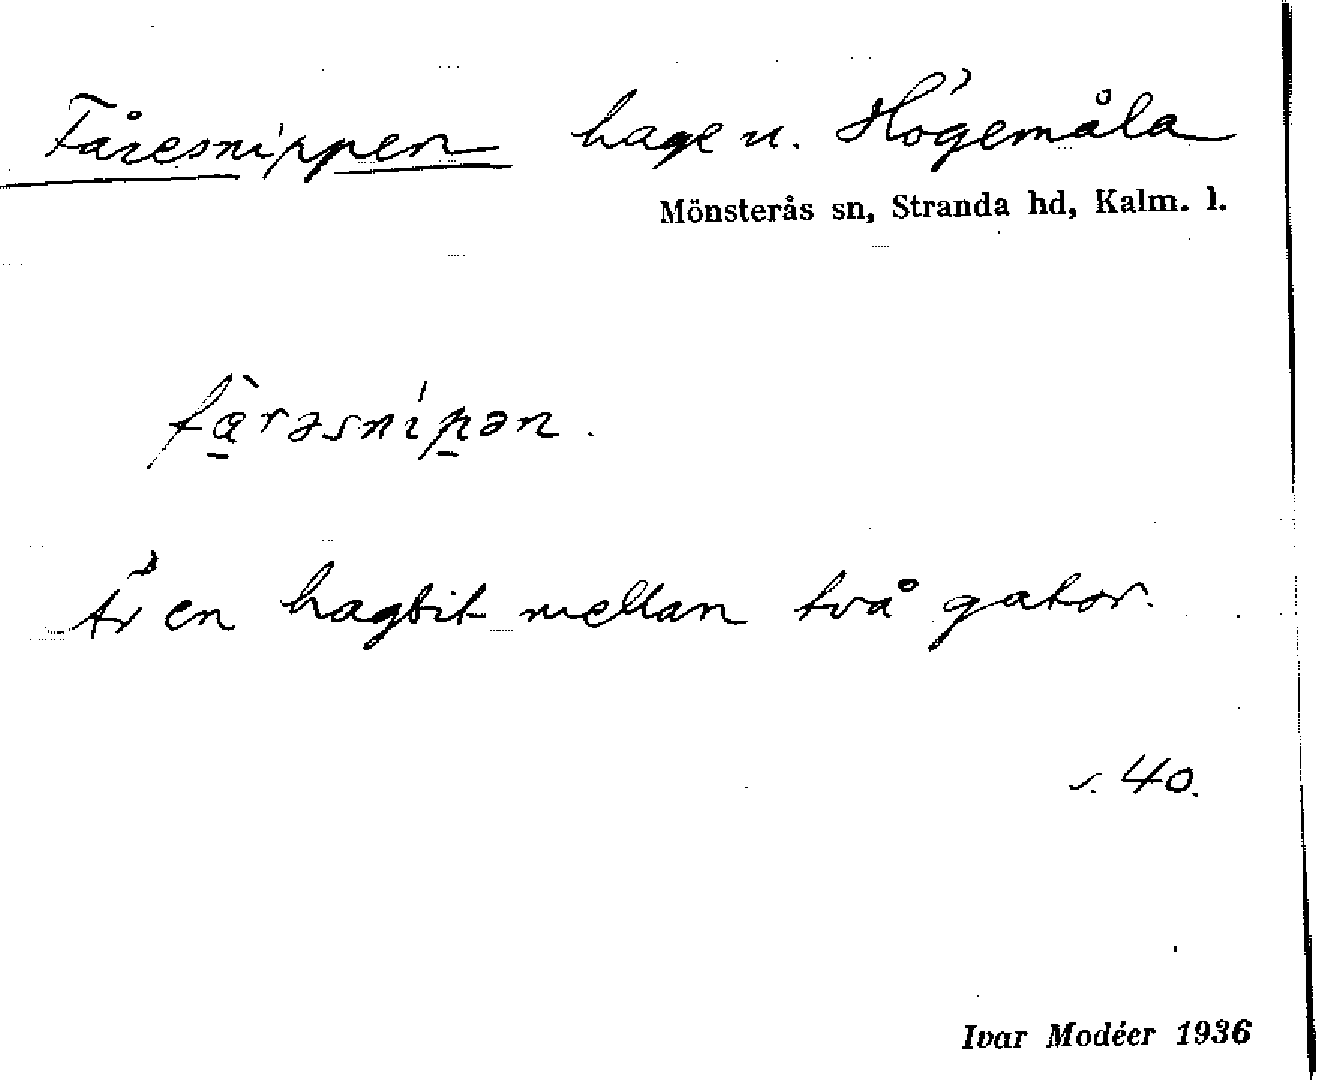 Fåresnippen hage u. Högemåla
Mönsterås sn, Stranda hd, Kalm. l.
fὰ̠rəsnip̠ən.
Är en hagbit mellan två gator.
s. 40.
Ivar Modéer 1936